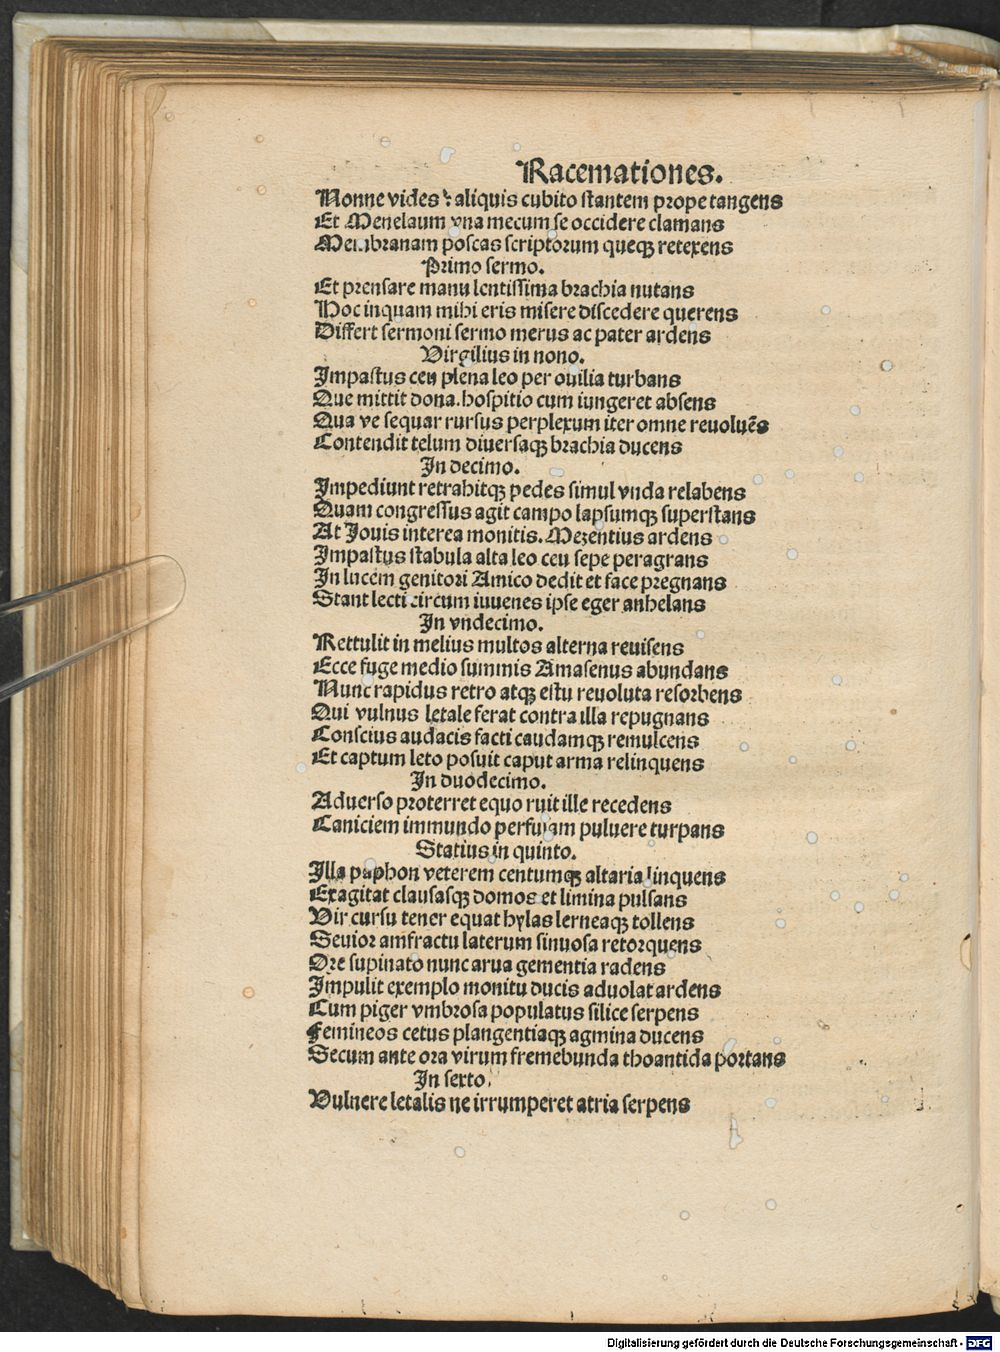 Racemationes.
Nonne vides : aliquis cubito stantem prope tangens
Et Menelaum vna mecum se occidere clamans
Membranam poscas scriptorum queqꝫ retexens
Primo sermo.
Et prensare manu lentissima brachia nutans
Hoc inquam mihi eris misere discedere querens
Differt sermoni sermo merus ac pater ardens
Virgilius in nono.
Impastus ceu plena leo per ouilia turbans
Que mittit dona. hospitio cum iungeret absens
Qua ve sequar rursus perplexum iter omne reuoluēs
Contendit telum diuersaqꝫ brachia ducens
In decimo.
Impediunt retrahitqꝫ pedes simul vnda relabens
Quam congressus agit campo lapsumqꝫ superstans
At Jouis interea monitis. Mezentius ardens
Impastus stabula alta leo ceu sepe peragrans
In lucem genitori Amico dedit et face pregnans
Stant lecti circum iuuenes ipse eger anhelans
In vndecimo.
Rettulit in melius multos alterna reuisens
Ecce fuge medio summis Amasenus abundans
Nunc rapidus retro atqꝫ estu reuoluta resorbens
Qui vulnus letale ferat contra illa repugnans
Conscius audacis facti caudamqꝫ remulcens
Et captum leto posuit caput arma relinquens
In duodecimo.
Aduerso proterret equo ruit ille recedens
Caniciem immundo perfusam puluere turpans
Statius in quinto.
Illa paphon veterem centumqꝫ altaria linquens
Exagitat clausasqꝫ domos et limina pulsans
Vir cursu tener equat hylas lerneaqꝫ tollens
Seuior amfractu laterum sinuosa retorquens
Ore supinato nunc arua gementia radens
Impulit exemplo monitu ducis aduolat ardens
Cum piger vmbrosa populatus silice serpens
Femineos cetus plangentiaqꝫ agmina ducens
Secum ante ora virum fremebunda thoantida portans
In sexto.
Vulnere letalis ne irrumperet atria serpens
Digitalisierung gefördert durch die Deutsche Forschungsgemeinschaft - DFG